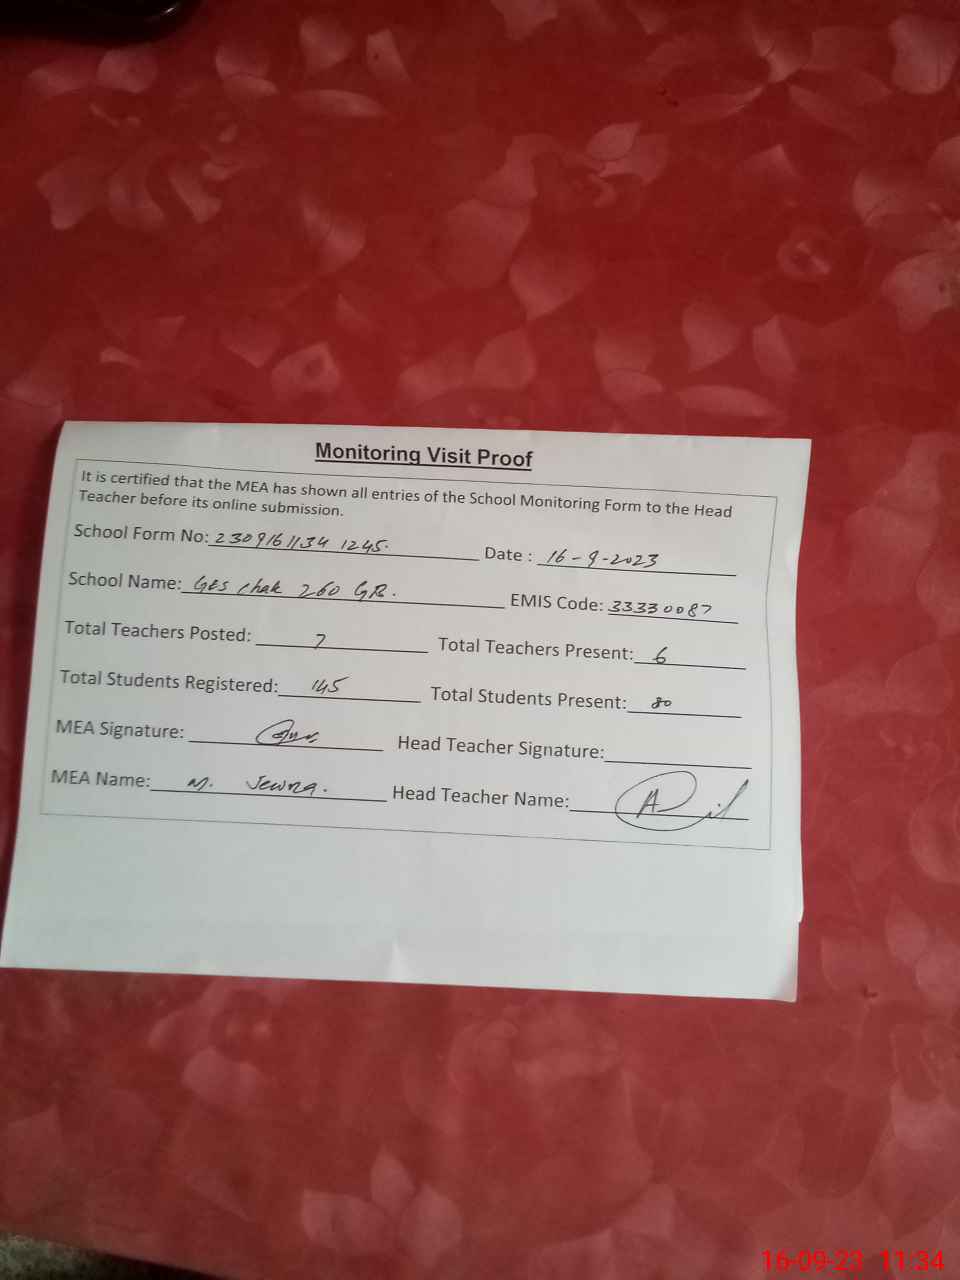 Monitoring Visit Proof
It is certified that the MEA has shown all entries of the School Monitoring Form to the Head
Teacher before its online submission.
School Form No: 2309161134 1245. Date : 16-9-2023
School Name: GES chak 260 GB. EMIS Code: 33330087
Total Teachers Posted: 7 Total Teachers Present: 6
Total Students Registered: 145 Total Students Present: 80
MEA Signature: Head Teacher Signature:
MEA Name: M. Head Teacher Name:
16-09-23 11:34